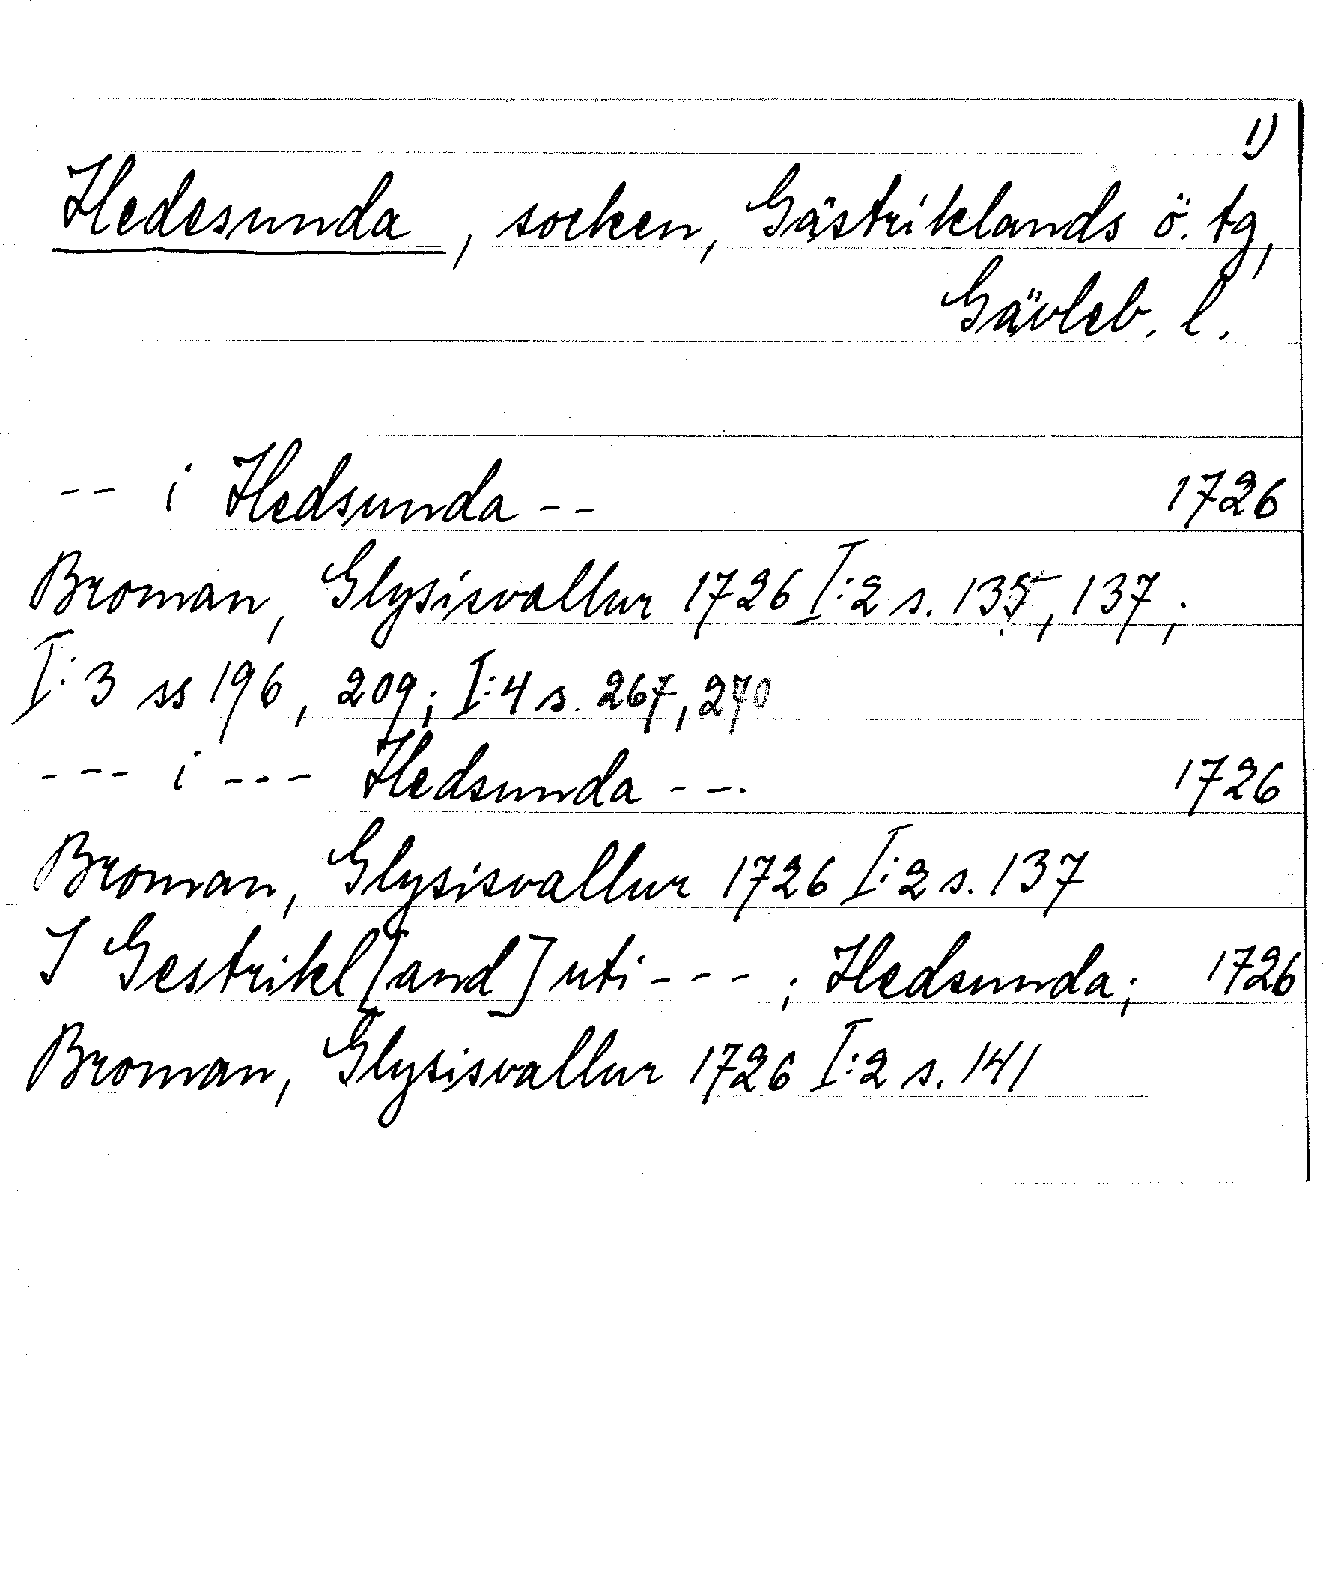 1)
Hedesunda, socken, Gästriklands ö. tg,
Gävleb. l.
-- i Hedsunda -- 1726
Broman, Glysisvallur 1726 I:2 s. 135, 137;
I:3 ss 196, 209; I:4 s. 267, 270
--- i --- Hedsunda --- 1726
Broman, Glysisvallur 1726 I:2 s. 137
I Gestrikl[and] uti --- ; Hedsunda; 1726
Broman, Glysisvallur 1726 I:2 s. 141